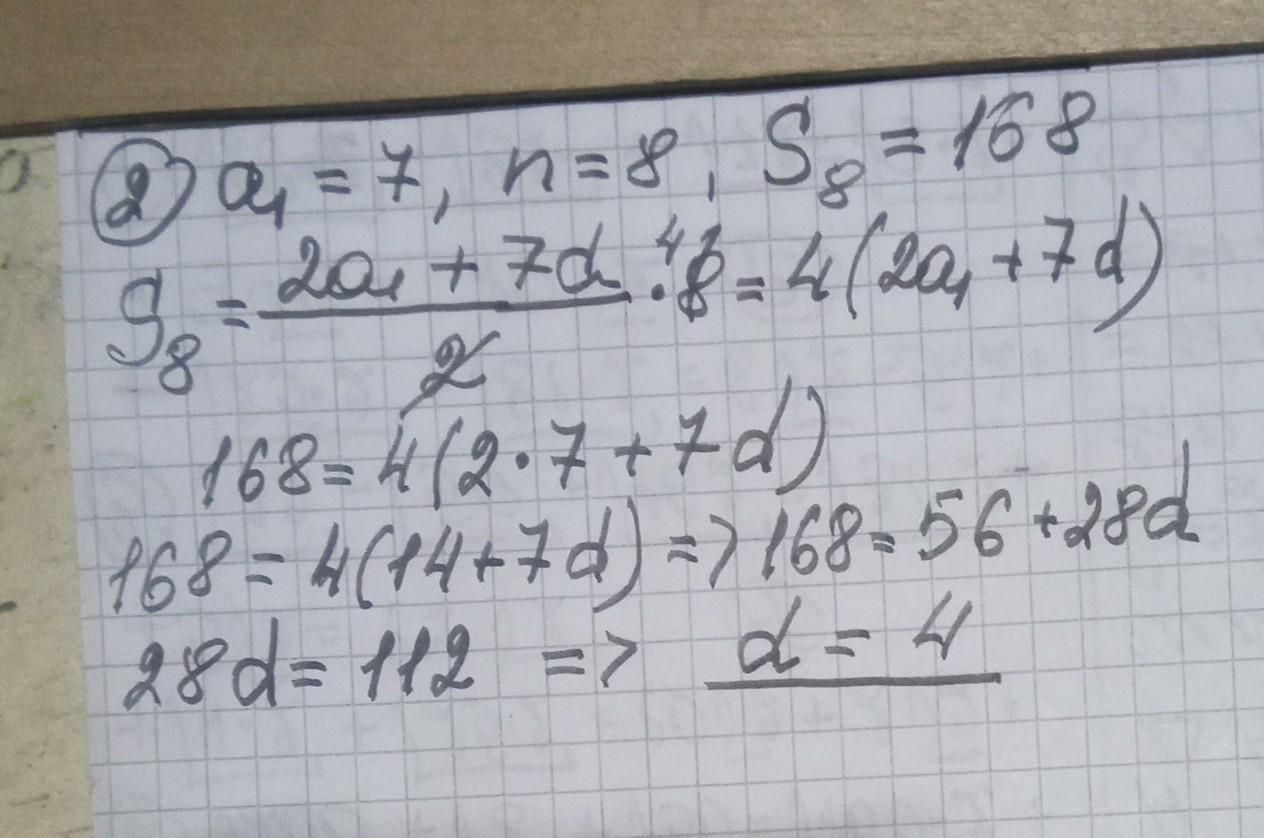 ② a₁ = 7, n = 8, S₈ = 168
S₈ = (2a₁ + 7d)/2 · 8 4 = 4(2a₁ + 7d)
168 = 4(2 · 7 + 7d)
168 = 4(14 + 7d) => 168 = 56 + 28d
28d = 112 => d = 4